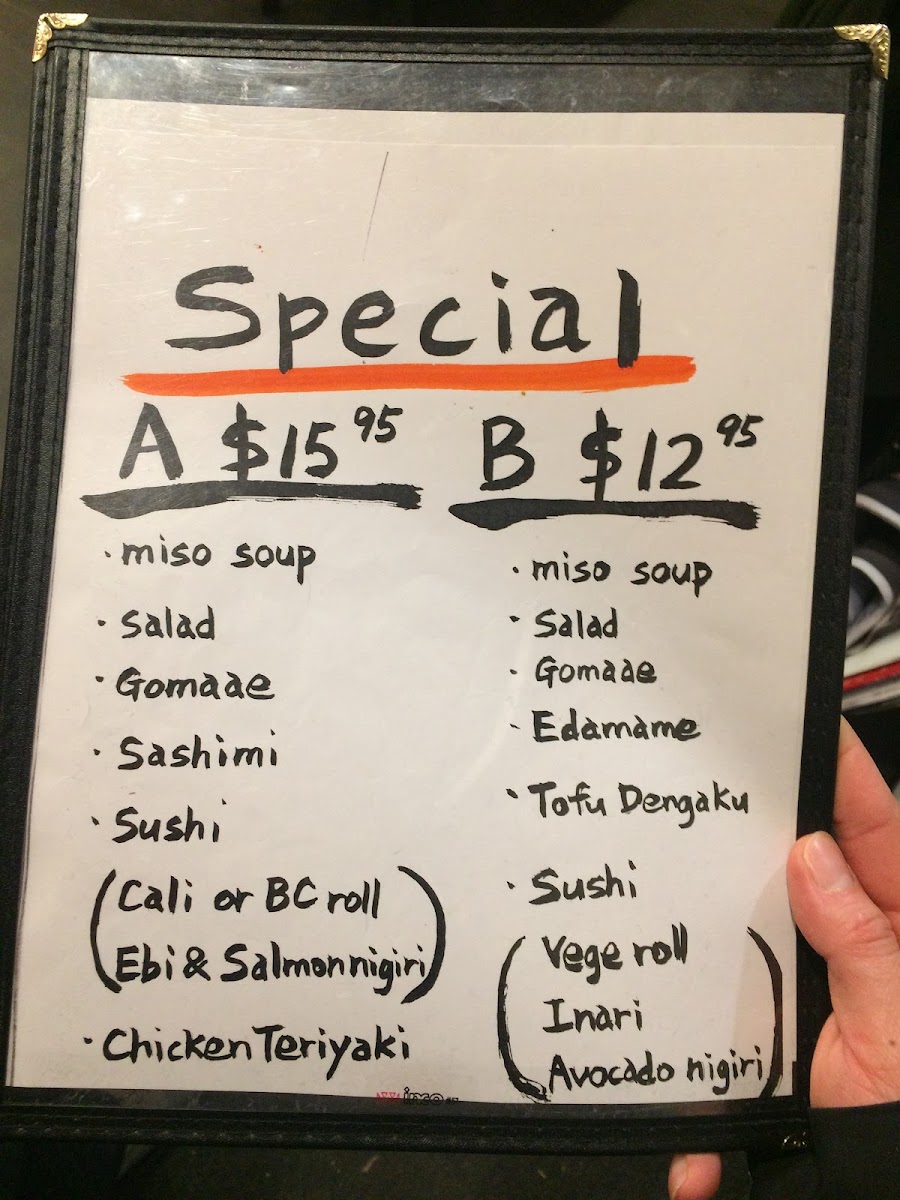 Special
A $15 95
· miso soup
· Salad
· Gomaae
· Sashimi
· Sushi
(Cali or BC roll
Ebi & Salmon nigiri)
· Chicken Teriyaki
B $12 95
· miso soup
· Salad
· Gomaae
· Edamame
· Tofu Dengaku
· Sushi
(Vege roll
Inari
Avocado nigiri)